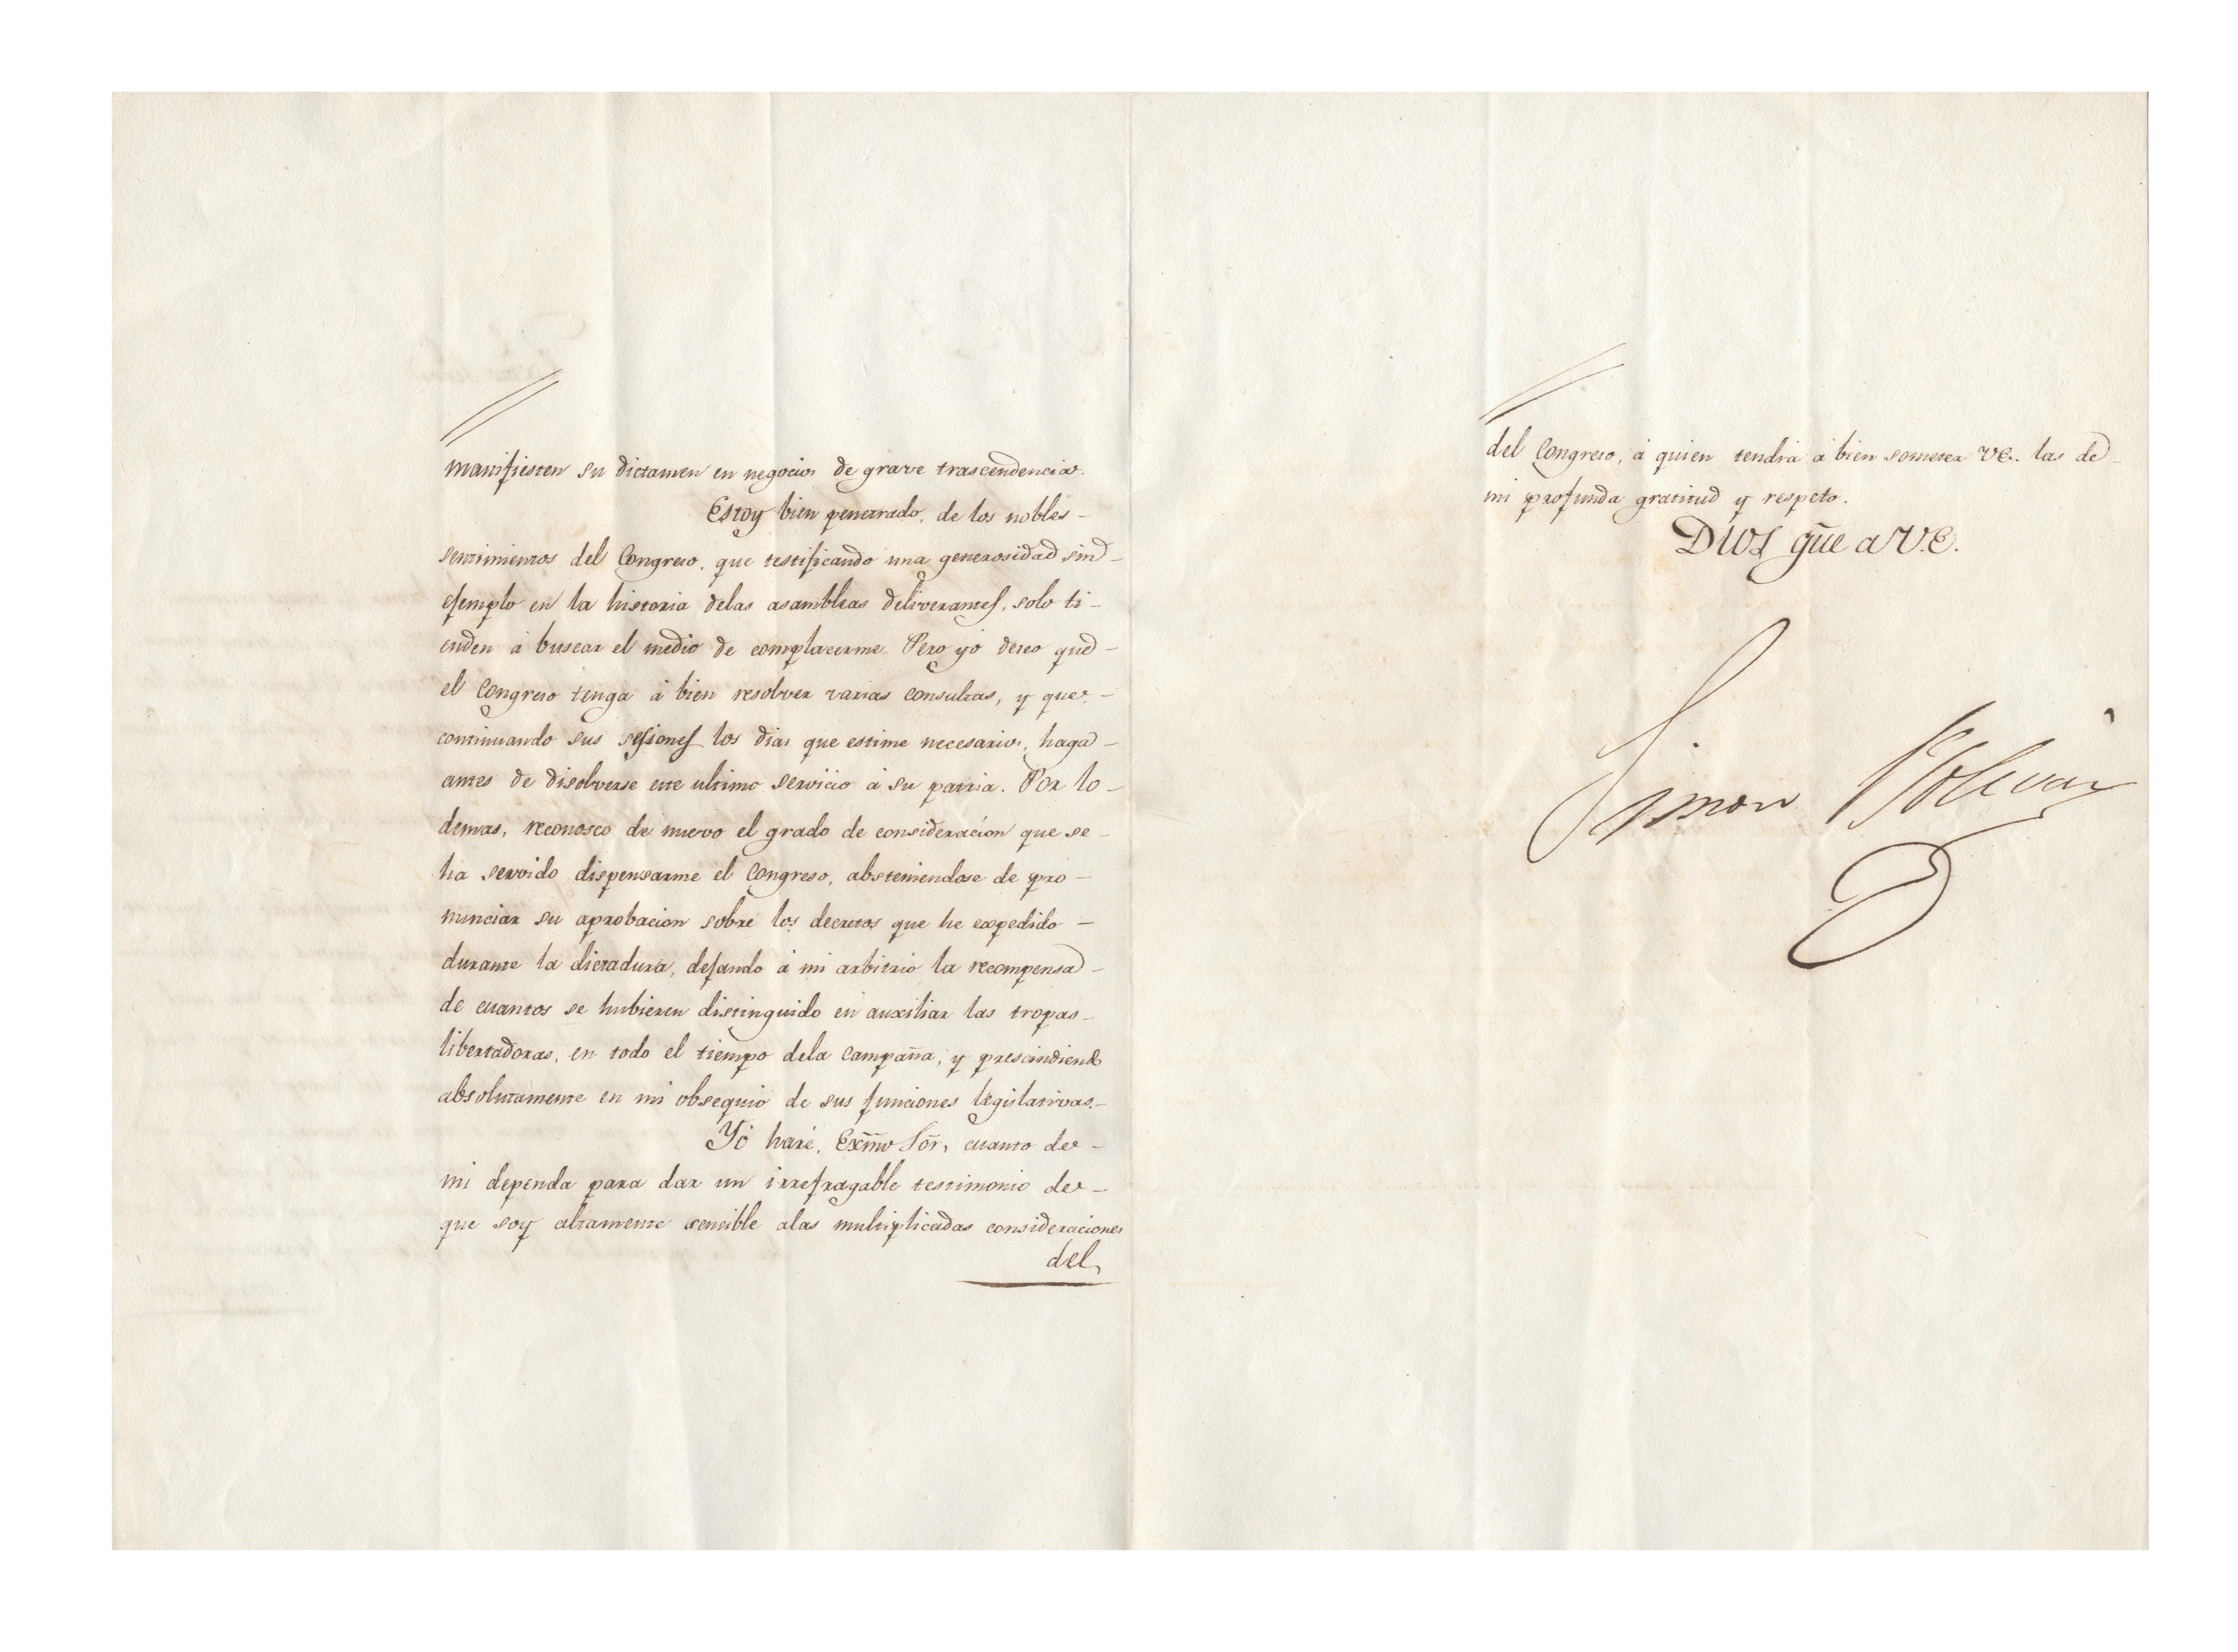 manifiesten su dictamen en negocios de grave trascendencia.
Estoy bien penetrado, de los nobles -
sentimientos del Congreso, que testificando una generosidad sin -
ejemplo en la historia delas asambleas deliverantes, solo ti -
enden á buscar el medio de complacerme. Pero yó deseo que -
el Congreso tenga á bien resolver varias consultas, y que -
continuando sus sesiones los dias que estime necesarios, haga -
antes de disolverse este ultimo servicio á su patria. Por lo -
demas, reconosco de nuevo el grado de consideración que se -
ha servido dispensarme el Congreso, absteniendose de pro -
nunciar su aprobacion sobre los decretos que he expedido -
durante la dictadura, dejando á mi arbitrio la recompensa -
de cuantos se hubieren distinguido en auxiliar las tropas -
libertadoras, en todo el tiempo dela campaña, y prescindiendo
absolutamente en mi obsequio de sus funciones legislativas. -
Yó haré, Exmo Sor, cuanto de -
mi dependa para dar un irrefragable testimonio de -
que soy altamente sencible alas multiplicadas consideraciones
del
del Congreso, á quien tendrá á bien someter VE. las de -
mi profunda gratitud y respeto.
DIOS gue a V.E.
Simon Bolivar